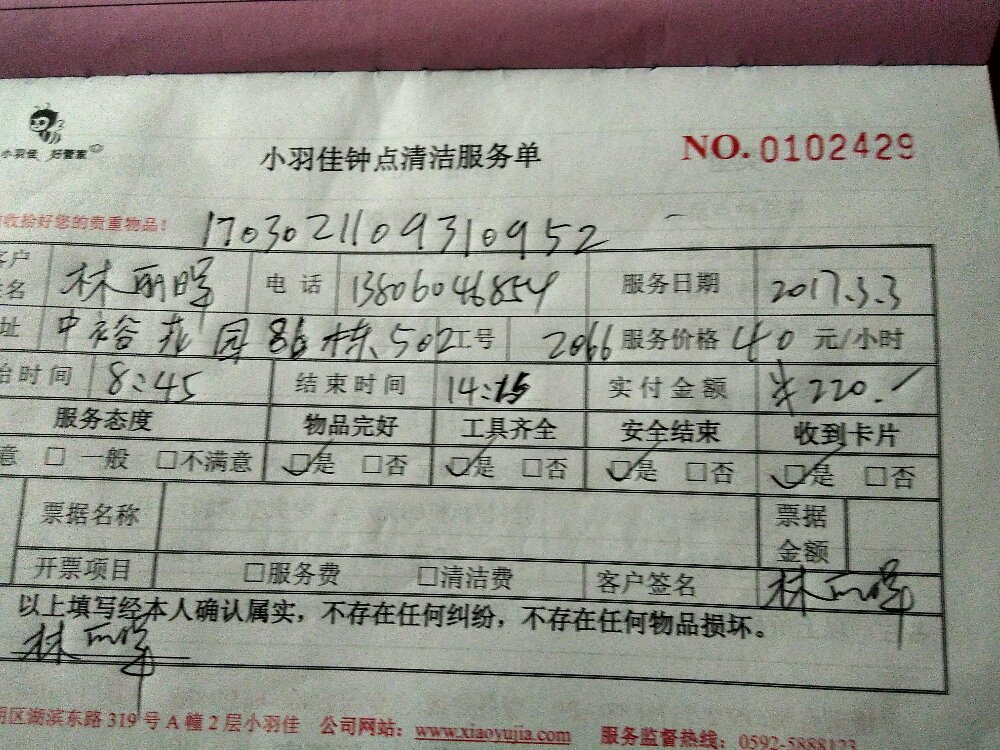 小羽佳 好管家
小羽佳钟点清洁服务单 NO. 0102429
收拾好您的贵重物品! 1703021109310952
客户 签名 林丽晖 电话 13806046854 服务日期 2017.3.3
址 中裕花园86栋502 工号 2066 服务价格 40 元/小时
始时间 8:45 结束时间 14:15 实付金额 ¥220.
服务态度 物品完好 工具齐全 安全结束 收到卡片
意 □ 一般 □不满意 □是 □否 □是 □否 □是 □否 □是 □否
票据名称 票据金额
开票项目 □服务费 □清洁费 客户签名 林丽晖
以上填写经本人确认属实，不存在任何纠纷，不存在任何物品损坏。
林丽晖
明区湖滨东路 319 号 A 幢 2 层小羽佳 公司网站： www.xiaoyujia.com 服务监督热线： 0592-5888123